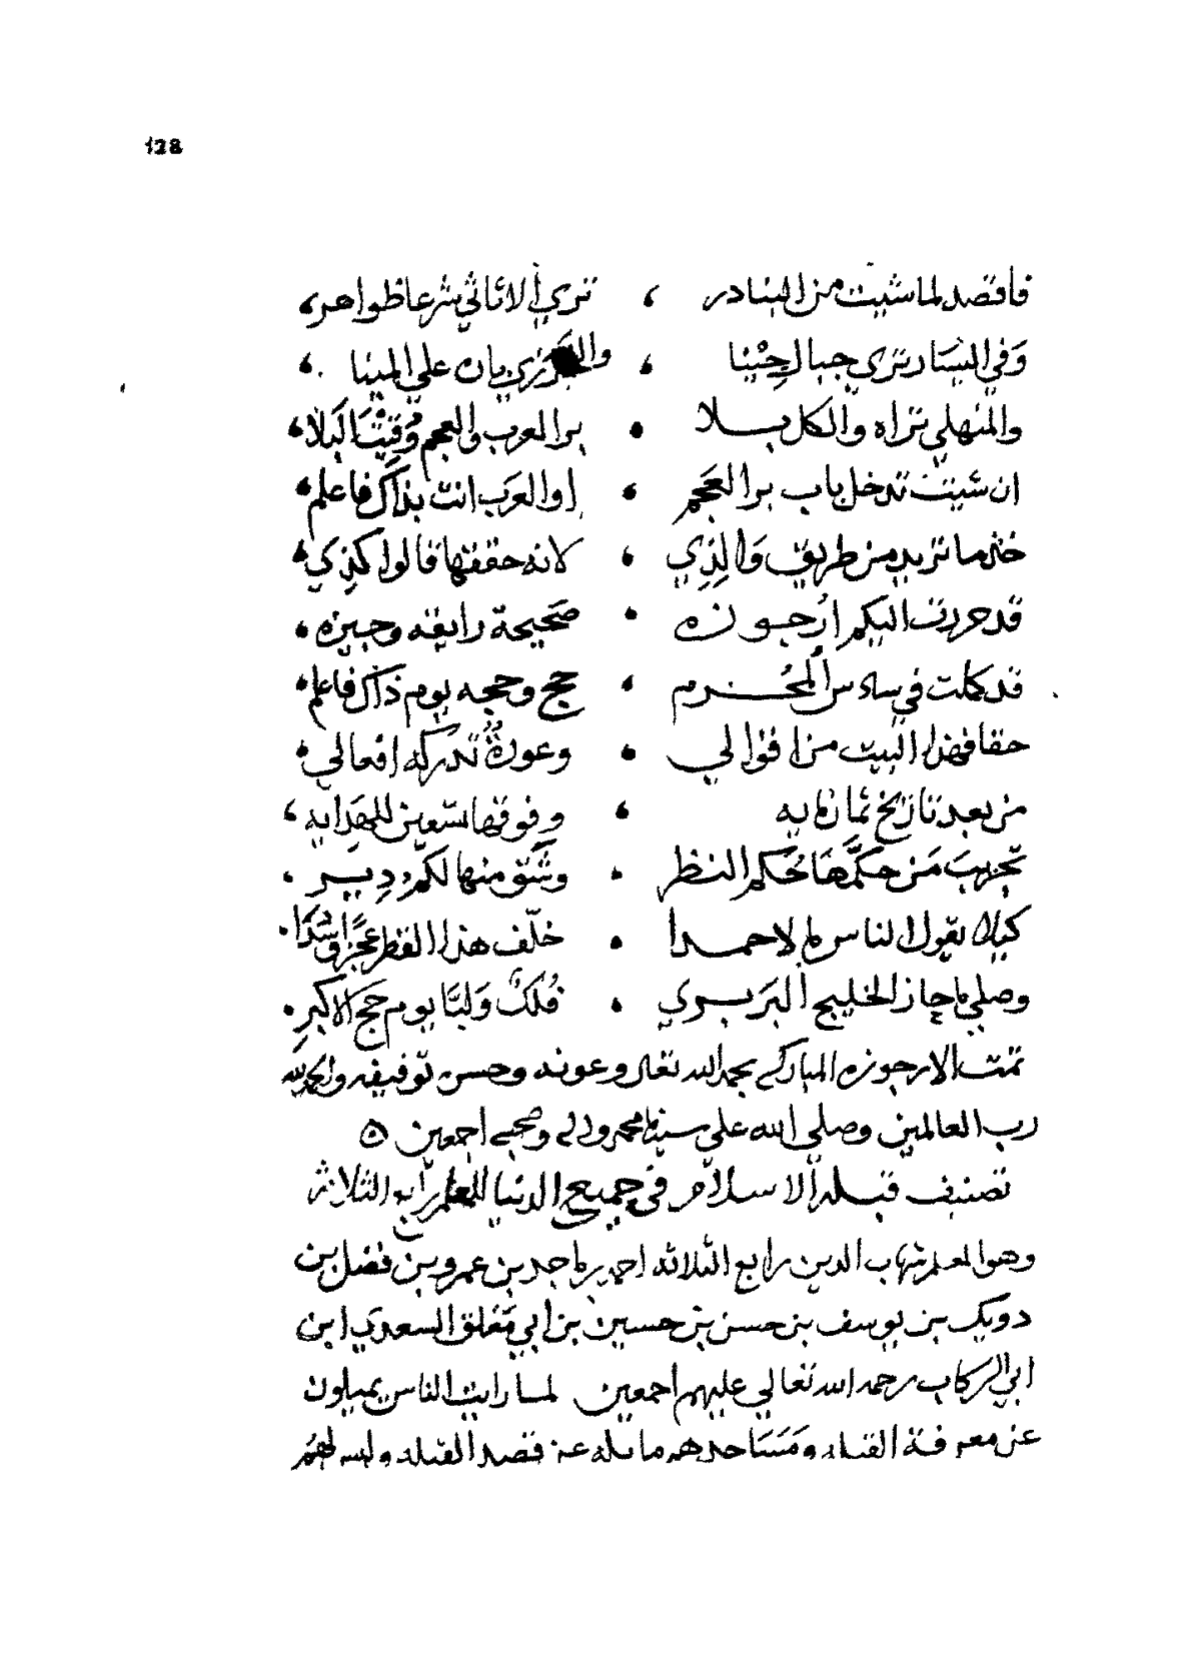 128
فاقصد لما شيت من البنادر ، تري الاثاثي شرعا ظواهر
وفي اليسار تري جبال حينا ، يزي بان علي المينا
والمنهلي تراه والكل بلا . بر العرب والعجم وقيت البلا
ان شيت تدخل باب بر العجم ، او العرب انت بذاك فاعلم
خذ ما تريد من طريق والذي ، لانه حققتها قالوا كذي
قد حررت اليكم ارجوزه . صحيحة رايقه وجيزه
قد كملت في سادس المحرم ، حج وحجه يوم ذاك فاعلم
حقا فهذا البيت من اقوالي . وعورة تدركه افعالي
من بعد تاريخ ثمان مايه ، وفوقها تسعين للهدايه
تجريب من حكمها محكم النظر . وشق منها لكم
كيلا يقول الناس لا احمدا . خلف هذا القطر عجزا
وصلي ما جاز الخليج البربري . فلك ولبا يوم حج الاكبر
تمت الارجوزه المباركه بحمد الله تعالى وعونه وحسن توفيقه والحمد لله
رب العالمين وصلي الله علي سيدنا محمد واله وصحبه اجمعين ٥
تصنيف قبلة الاسلام في جميع الدنيا للمعلم رابع الثلاثه
وهو المعلم شهاب الدين رابع الثلاثه احمد بن ماجد بن عمرو بن فضل بن
دويك بن يوسف بن حسن بن حسين بن ابي مغلق السعدي ابن
ابي الركاب رحمه الله تعالي عليهم اجمعين لما رايت الناس يميلون
عن معرفة القبله ومساجدهم مايله عن قصد القبله وليس لهم